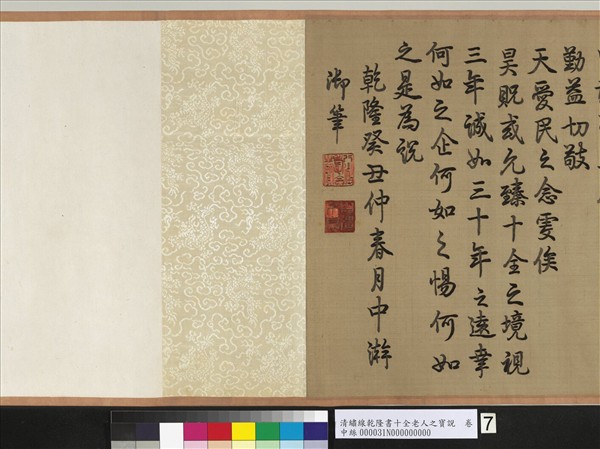 勤益切敬
天愛民之念雯俟
昊貺或允臻十全之境視
三年誠如三十年之遠幸
何如之企何如之惕何如
之是為說
乾隆癸丑仲春月中澣
御筆
清繡線乾隆書十全老人之寶說 卷
中絲 000031N000000000
7